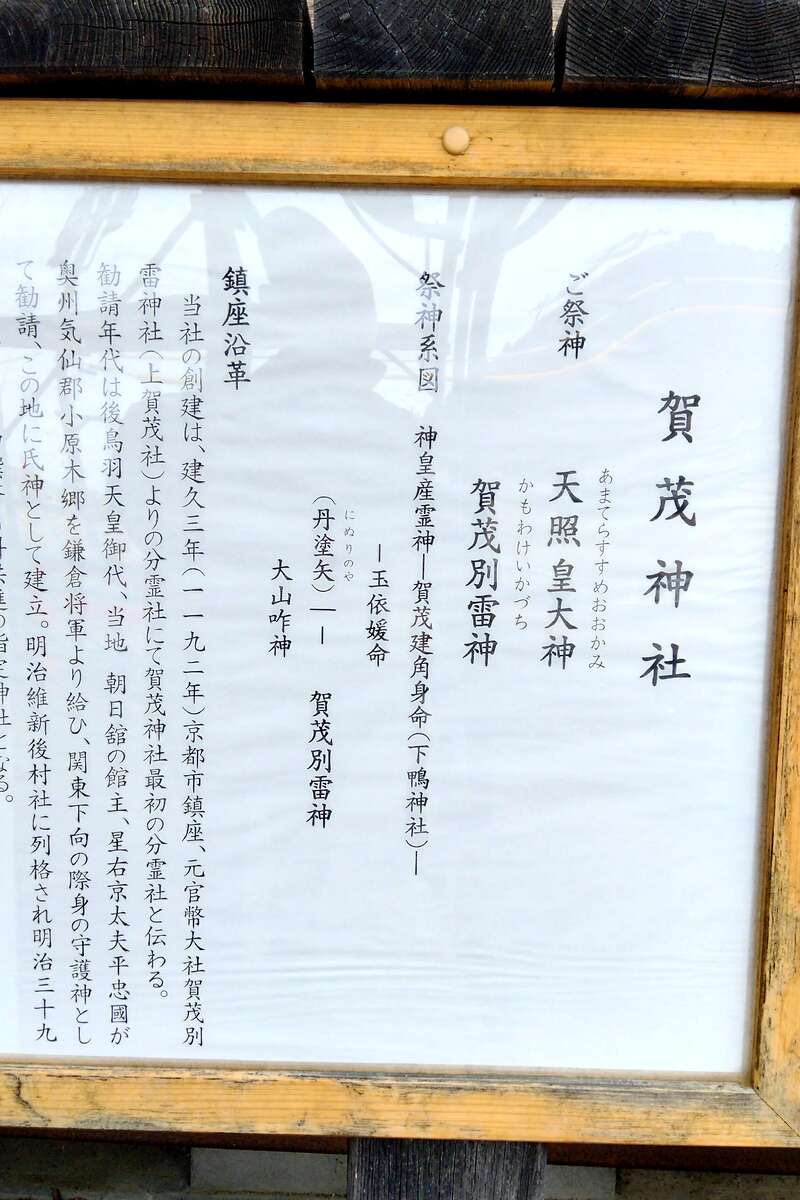 賀茂神社
ご祭神
あまてらすすめおおかみ
天照皇大神
かもわけいかづち
賀茂別雷神
祭神系図 神皇産霊神―賀茂建角身命(下鴨神社)―
―玉依媛命
にぬりのや
(丹塗矢)――
賀茂別雷神
大山咋神
鎮座沿革
当社の創建は、建久三年(一一九二年)京都市鎮座、元官幣大社賀茂別
雷神社(上賀茂社)よりの分霊社にて賀茂神社最初の分霊社と伝わる。
勧請年代は後鳥羽天皇御代、当地 朝日舘の館主、星右京太夫平忠國が
奥州気仙郡小原木郷を鎌倉将軍より給ひ、関東下向の際身の守護神とし
て勧請、この地に氏神として建立。明治維新後村社に列格され明治三十九
指定神社となる。